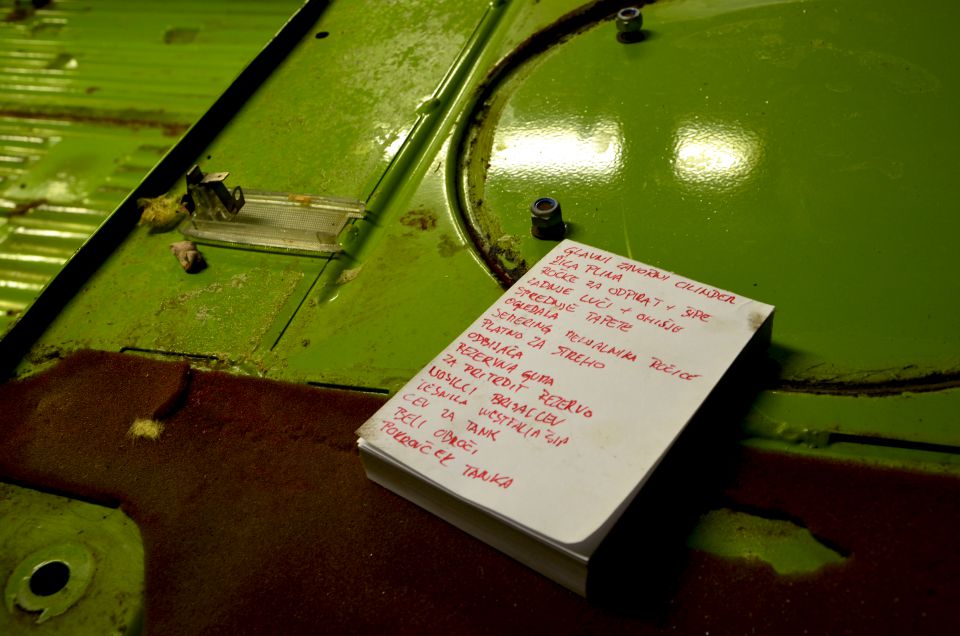 GLAVNI ZAVORNI CILINDER
ŽICA PLINA
ROČKE ZA ODPIRAT + ŠIPE
ZADNJE LUČI + OHIŠJE
SPREDNJE TAPETE
OGLEDALA
SEMERING MENJALNIKA ROČICE
PLATNO ZA STREHO
ODBIJAČA
REZERVNA GUMA
ZA PRITRDIT REZERVO
NOSILCI BRISALCEV
TESNILA WESTFALIA ŠIP
CEV ZA TANK
BELI OBROČI
POKROVČEK TANKA